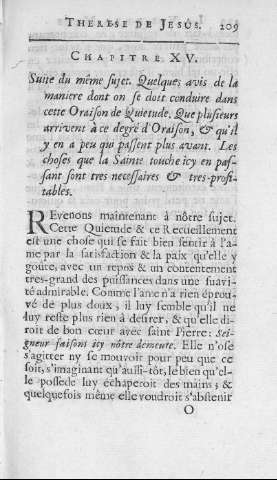 THERESE DE JESUS. 209
CHAPITRE XV.
Suite du même sujet. Quelques avis de la
maniere dont on se doit conduire dans
cette Oraison de Quietude. Que plusieurs
arrivent à ce degré d'Oraison, & qu'il
y en a peu qui passent plus avant. Les
choses que la Sainte touche icy en pas-
sant sont tres necessaires & tres-profi-
tables.
REvenons maintenant à nôtre sujet.
Cette Quietude & ce Recueillement
est une chose qui se fait bien sentir à l'a-
me par la satisfaction & la paix qu'elle y
goûte, avec un repos & un contentement
tres-grand des puissances dans une suavi-
té admirable. Comme l'ame n'a rien éprou-
vé de plus doux, il luy semble qu'il ne
luy reste plus rien à desirer, & qu'elle di-
roit de bon cœur avec saint Pierre: Sei-
gneur faisons icy nôtre demeure. Elle n'ose
s'agitter ny se mouvoir pour peu que ce
soit, s'imaginant qu'aussi-tôt, le bien qu'el-
le possede luy échaperoit des mains; &
quelquefois même elle voudroit s'abstenir
O